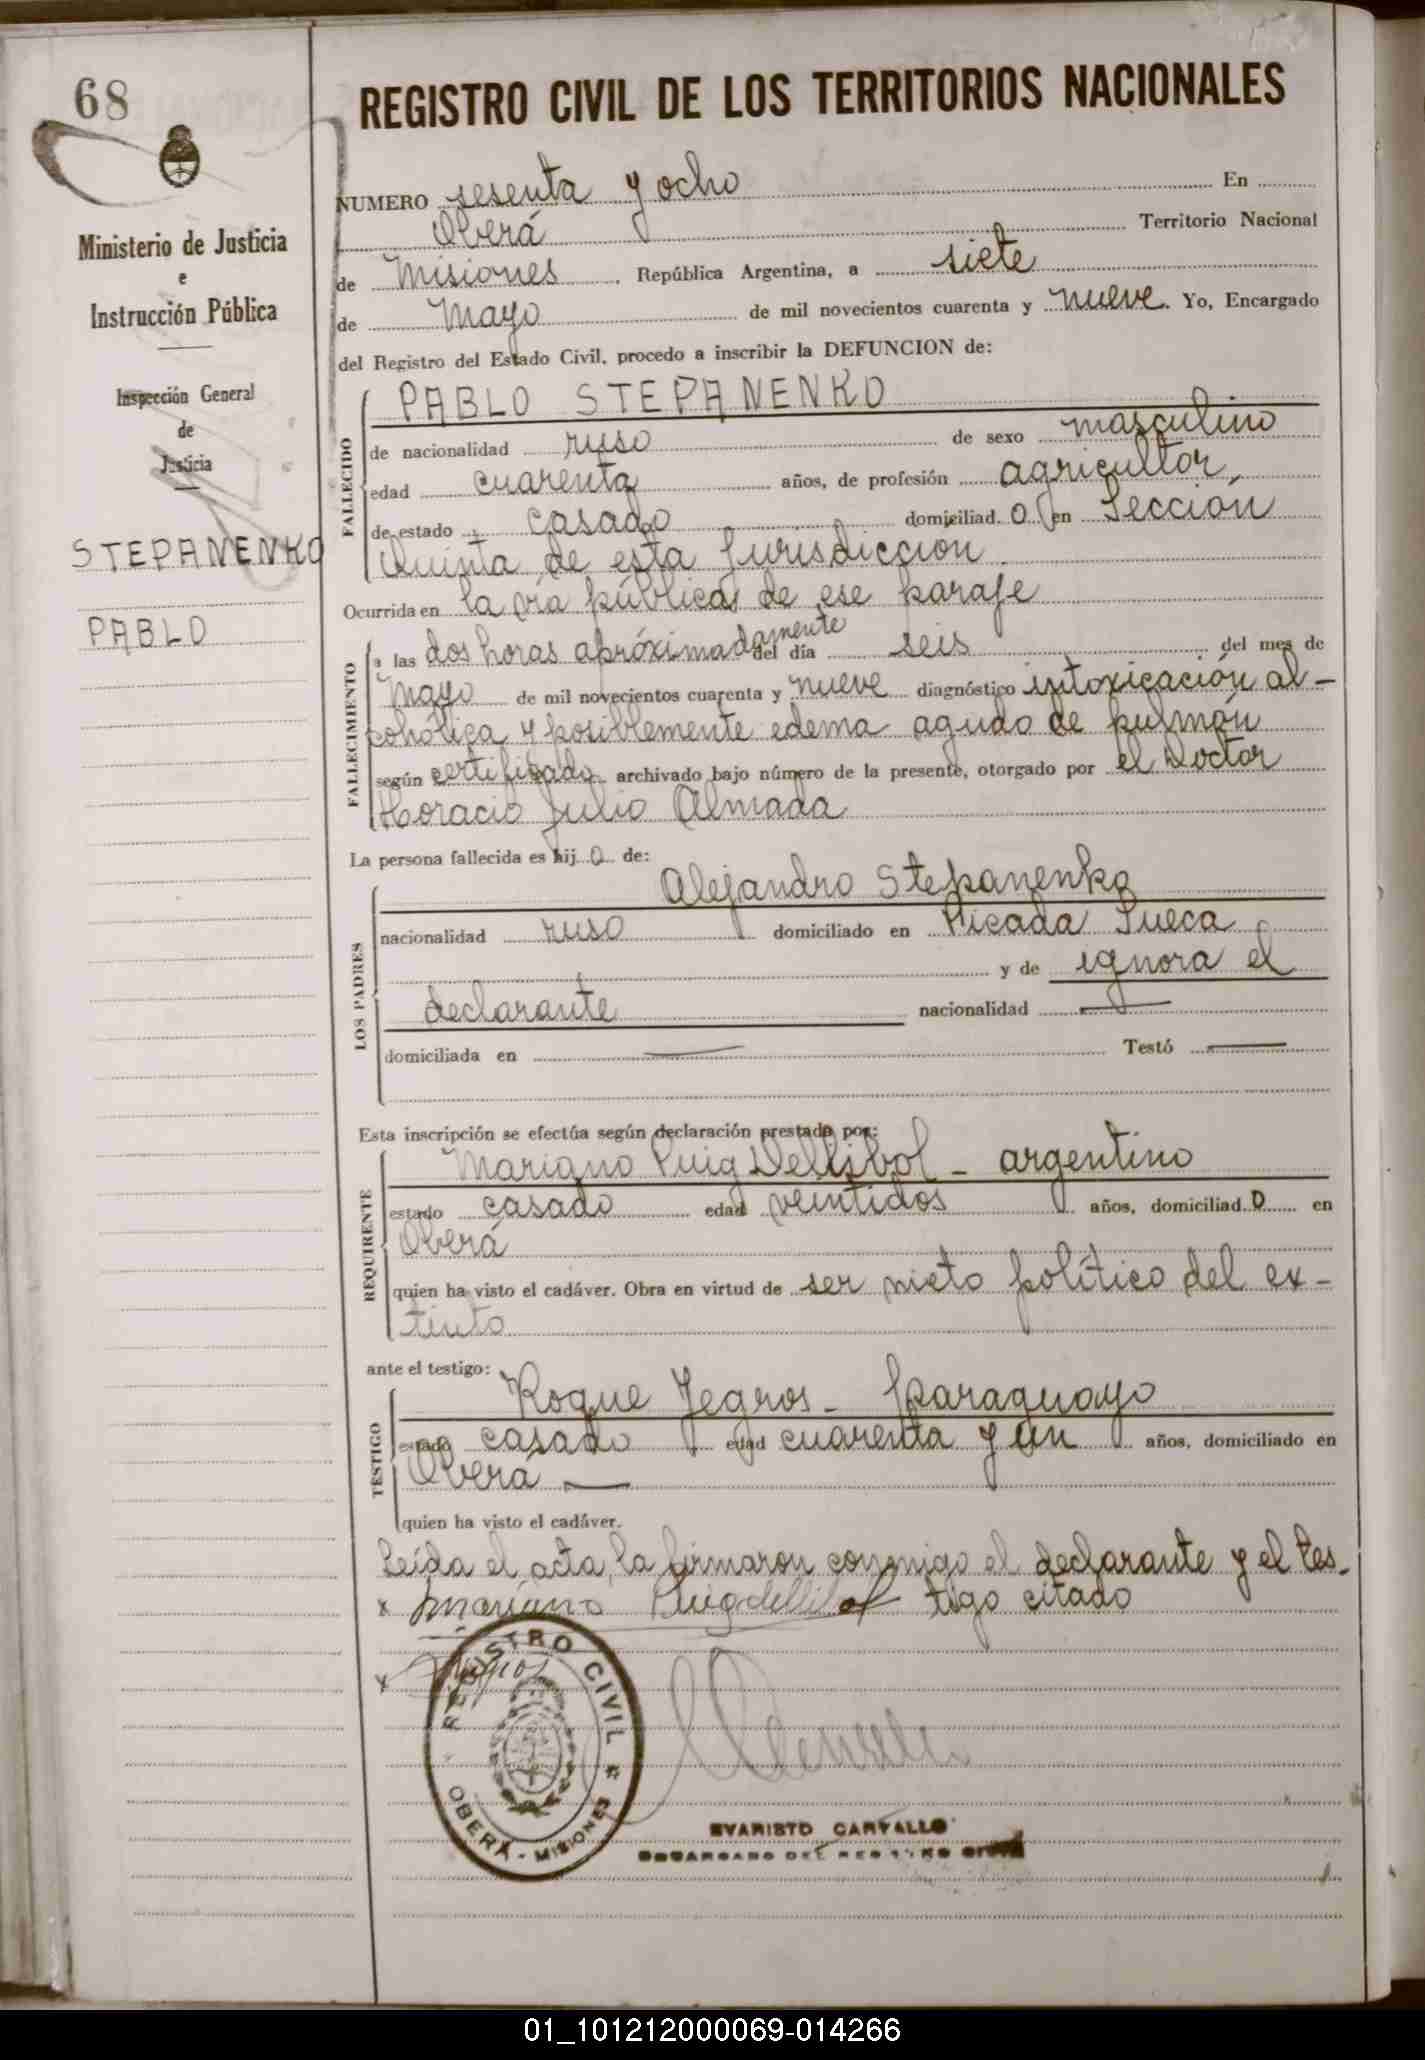 68
REGISTRO CIVIL DE LOS TERRITORIOS NACIONALES
Ministerio de Justicia
e
Instrucción Pública
Inspección General
de
Justicia
STEPANENKO
PABLO
NUMERO sesenta y ocho En
Oberá Territorio Nacional
de Misiones, República Argentina, a siete
de Mayo de mil novecientos cuarenta y nueve. Yo, Encargado
del Registro del Estado Civil, procedo a inscribir la DEFUNCION de:
FALLECIDO
PABLO STEPANENKO
de nacionalidad ruso de sexo masculino
edad cuarenta años, de profesión agricultor
de estado casado domiciliad.o en Sección
Quinta de esta Jurisdiccion
Ocurrida en la vía pública de ese paraje
FALLECIMIENTO
a las dos horas apróximadamente del día seis del mes de
Mayo de mil novecientos cuarenta y nueve diagnóstico intoxicación al-
cohólica y posiblemente edema agudo de pulmón
según certificado archivado bajo número de la presente, otorgado por el Doctor
Horacio Julio Almada
La persona fallecida es hij.o de:
LOS PADRES
Alejandro Stepanenko
nacionalidad ruso domiciliado en Picada Sueca
y de ignora el
declarante nacionalidad —
domiciliada en — Testó —
Esta inscripción se efectúa según declaración prestada por:
REQUIRENTE
Mariano Puig Dellibol - argentino
estado casado edad veintidos años, domiciliad.o en
Oberá
quien ha visto el cadáver. Obra en virtud de ser nieto político del ex-
tinto
ante el testigo:
TESTIGO
Roque Yegros - paraguayo
estado casado edad cuarenta y un años, domiciliado en
Oberá —
quien ha visto el cadáver.
Leída el acta, la firmaron conmigo el declarante y el tes-
x Mariano Puigdellibol tigo citado
x
REGISTRO CIVIL
OBERÁ - MISIONES
EVARISTO CARVALLO
ENCARGADO DEL REGISTRO CIVIL
01_101212000069-014266